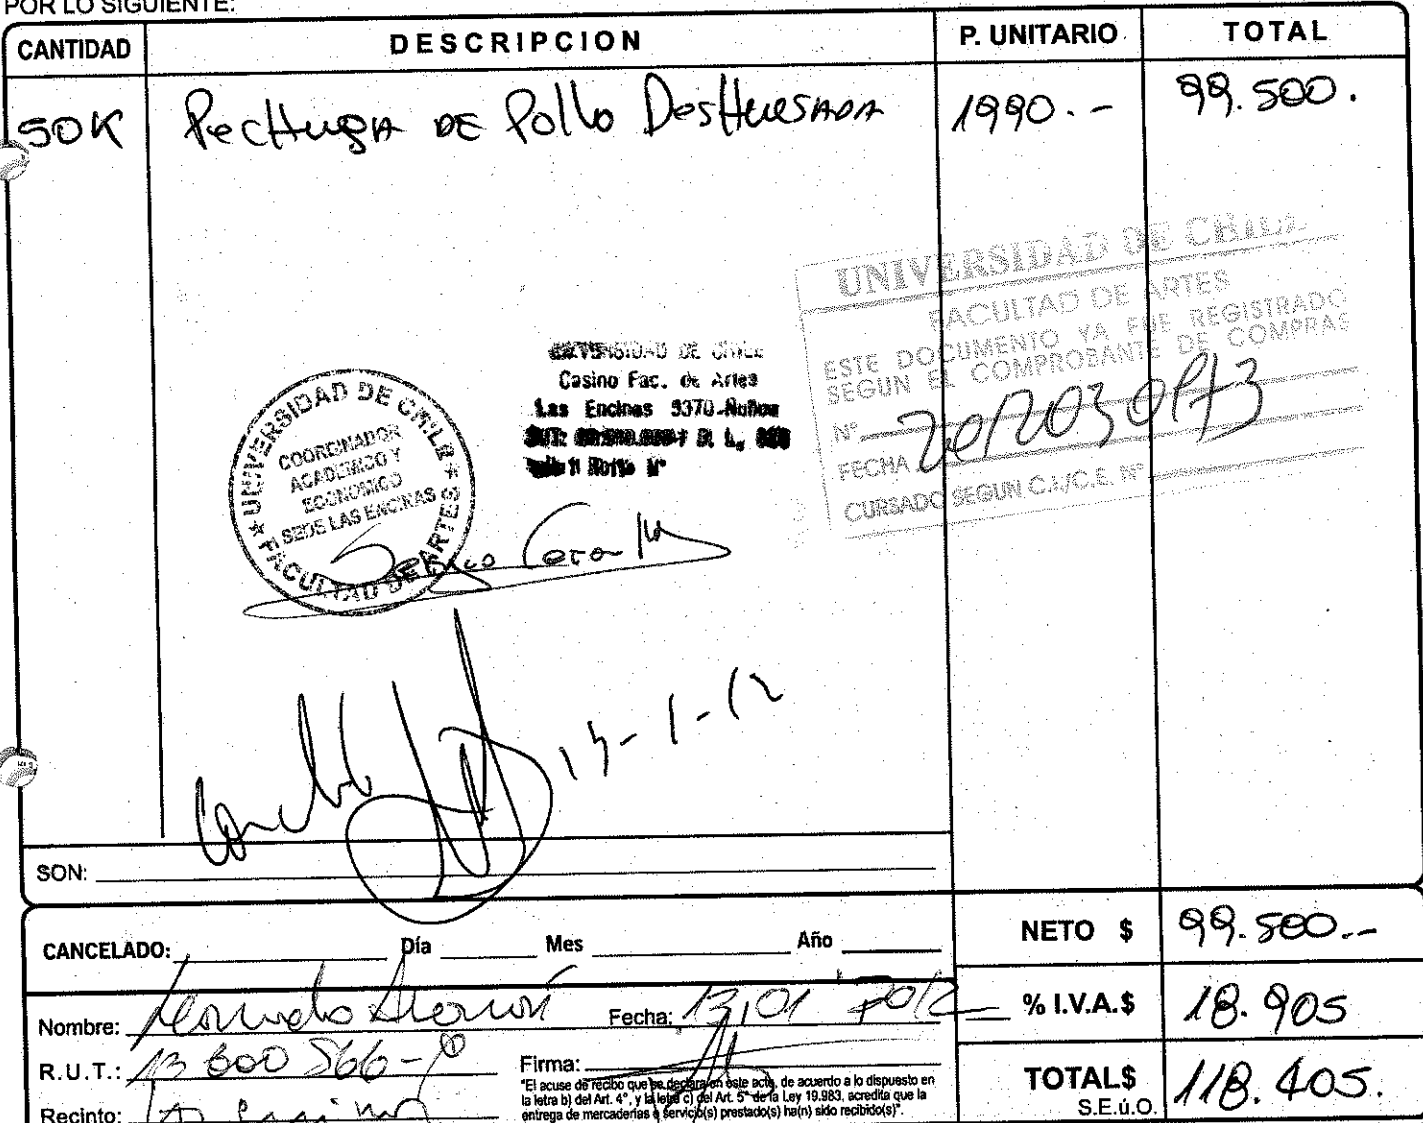 POR LO SIGUIENTE:
CANTIDAD DESCRIPCION P. UNITARIO TOTAL
50K Pechuga de Pollo Deshuesada 1990.- 99.500.
UNIVERSIDAD DE CHILE
FACULTAD DE ARTES
ESTE DOCUMENTO YA FUE REGISTRADO
SEGUN EL COMPROBANTE DE COMPRAS
Nº
FECHA
CURSADO SEGUN C.I./C.E. Nº
UNIVERSIDAD DE CHILE
Casino Fac. de Artes
Las Encinas 3370-Ñuñoa
UNIVERSIDAD DE CHILE
COORDINADOR
ACADEMICO Y
ECONOMICO
SEDE LAS ENCINAS
FACULTAD DE ARTES
SON:
CANCELADO: Día Mes Año
NETO $ 99.500.--
Nombre: Fecha: 13,01 2012
% I.V.A.$ 18.905
R.U.T.: 13 600 566-
Firma:
"El acuse de recibo que se declara en este acto, de acuerdo a lo dispuesto en
la letra b) del Art. 4°, y la letra c) del Art. 5° de la Ley 19.983, acredita que la
entrega de mercaderías o servicio(s) prestado(s) ha(n) sido recibido(s)".
TOTAL$ 118.405.
S.E.ú.O.
Recinto: